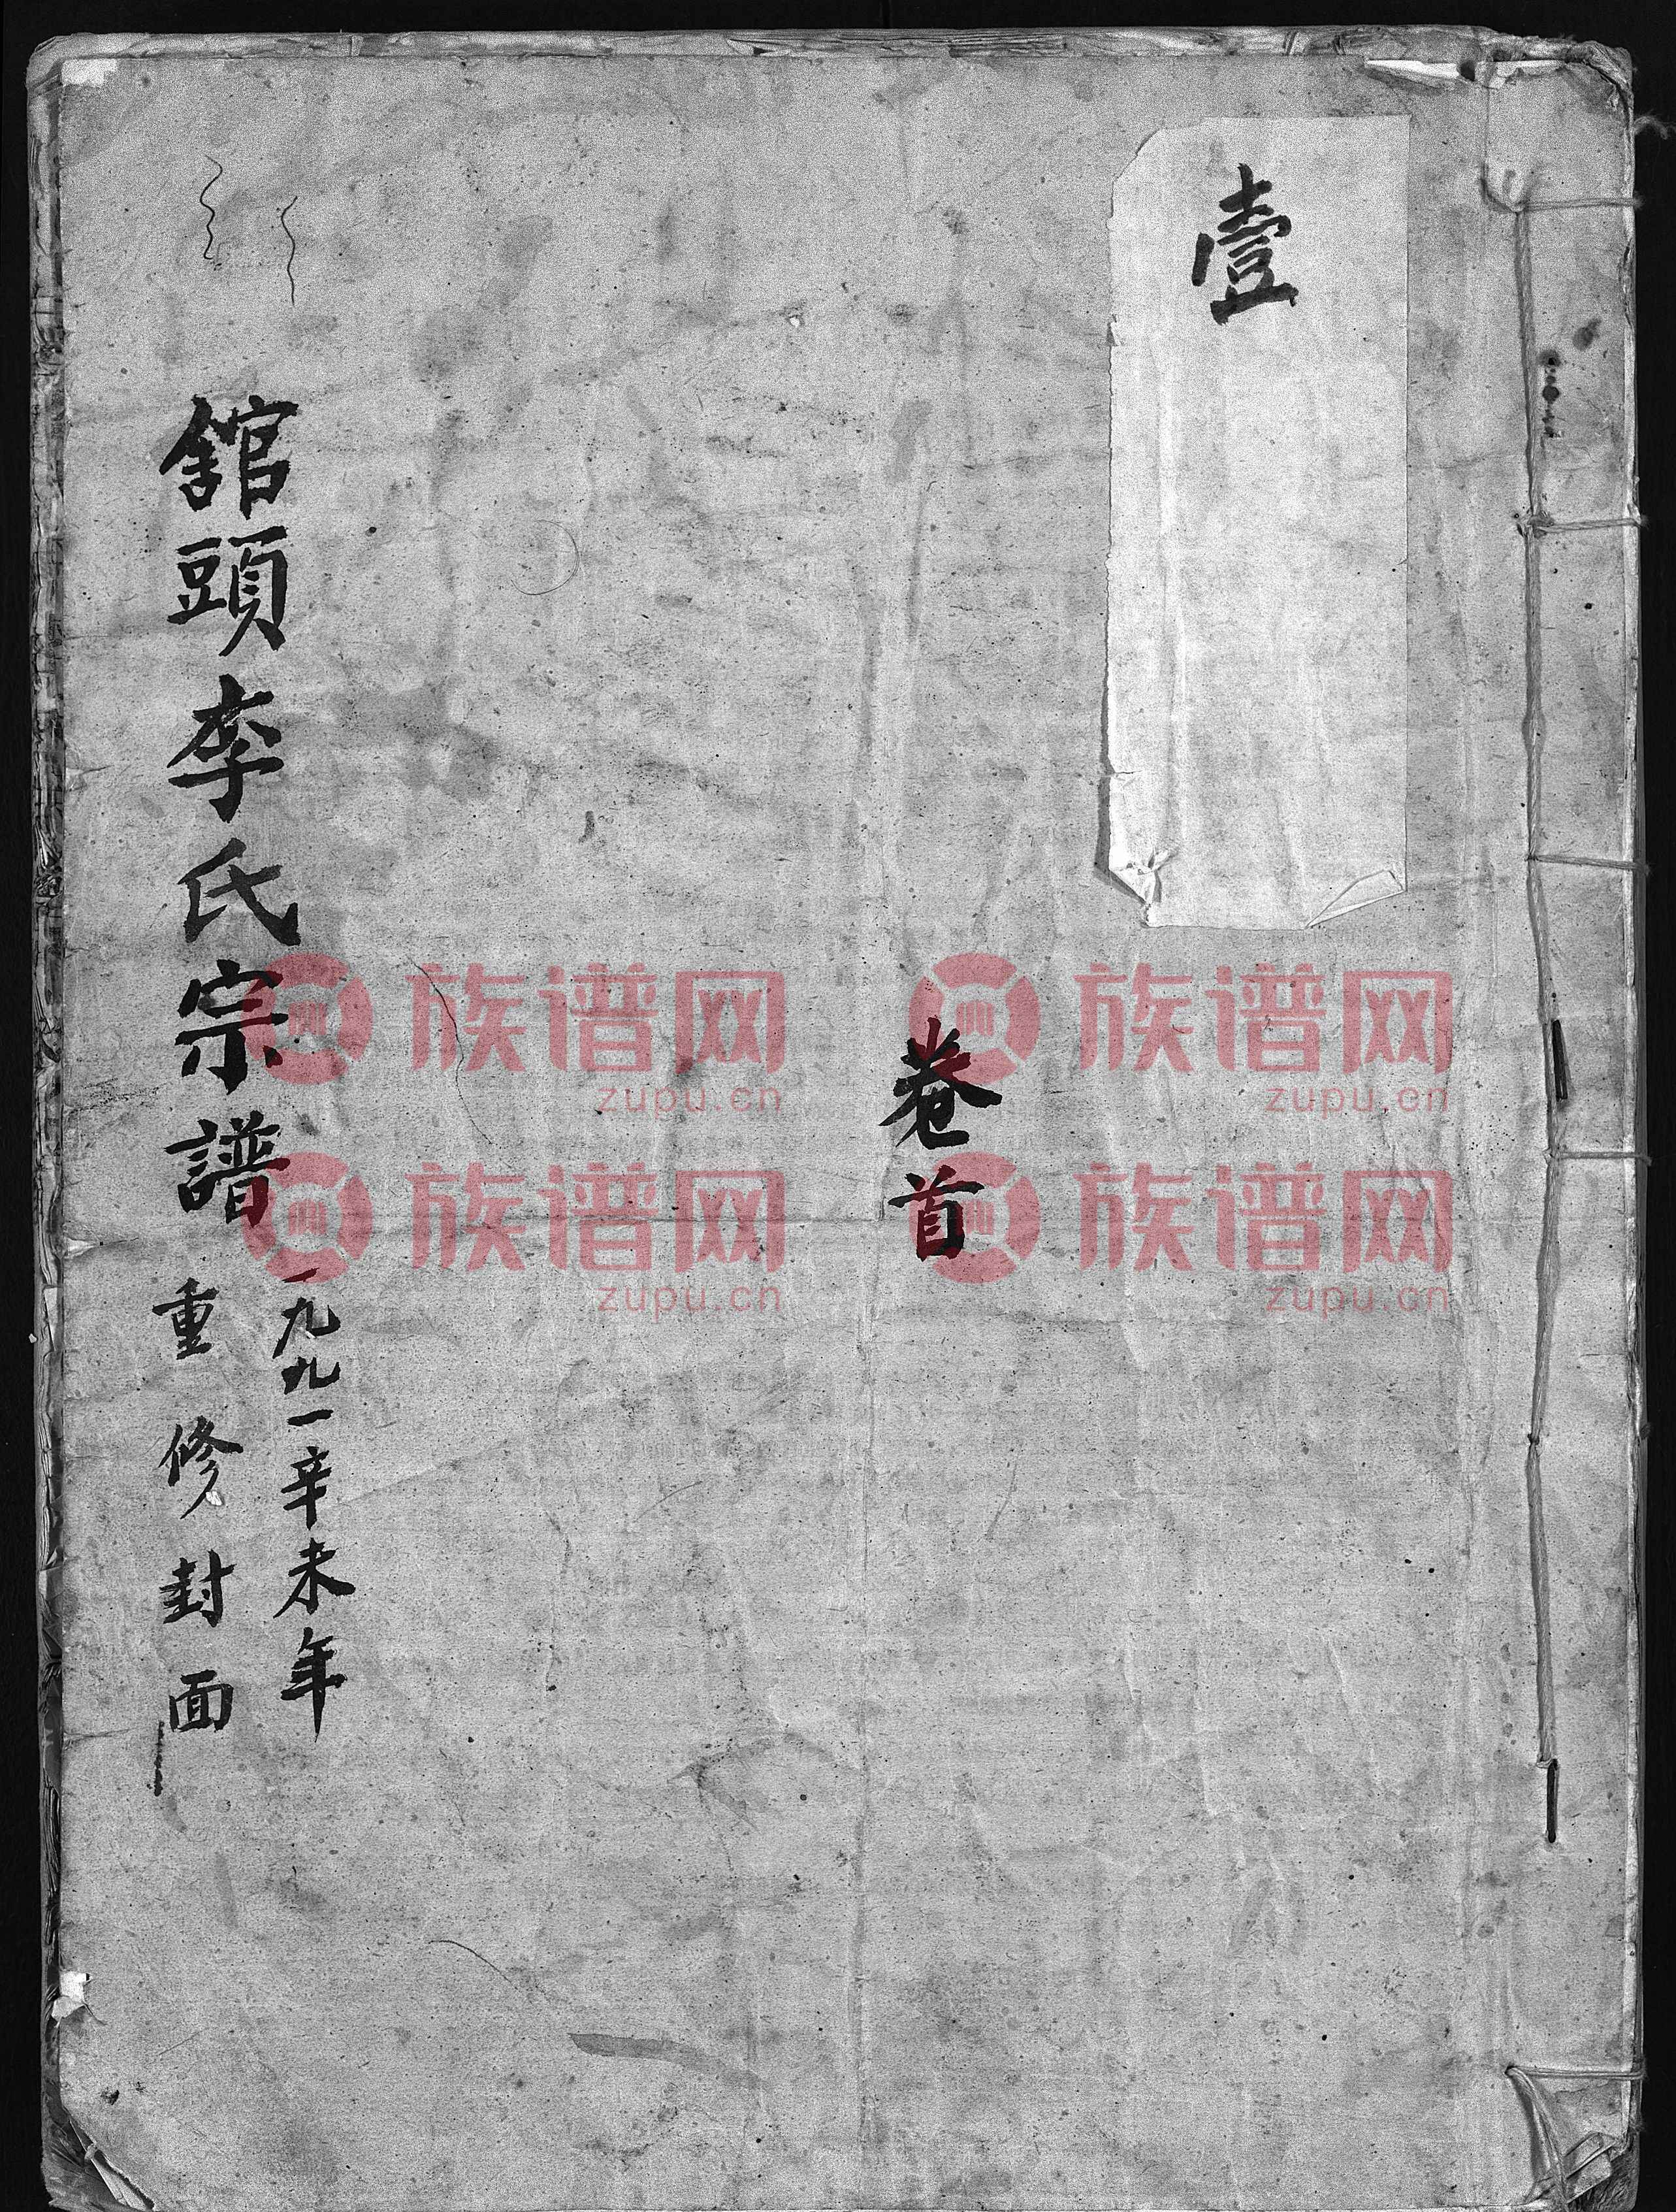 壹
卷首
一九九一辛未年
舘頭李氏宗譜 重修封面
族谱网
zupu.cn
族谱网
zupu.cn
族谱网
zupu.cn
族谱网
zupu.cn